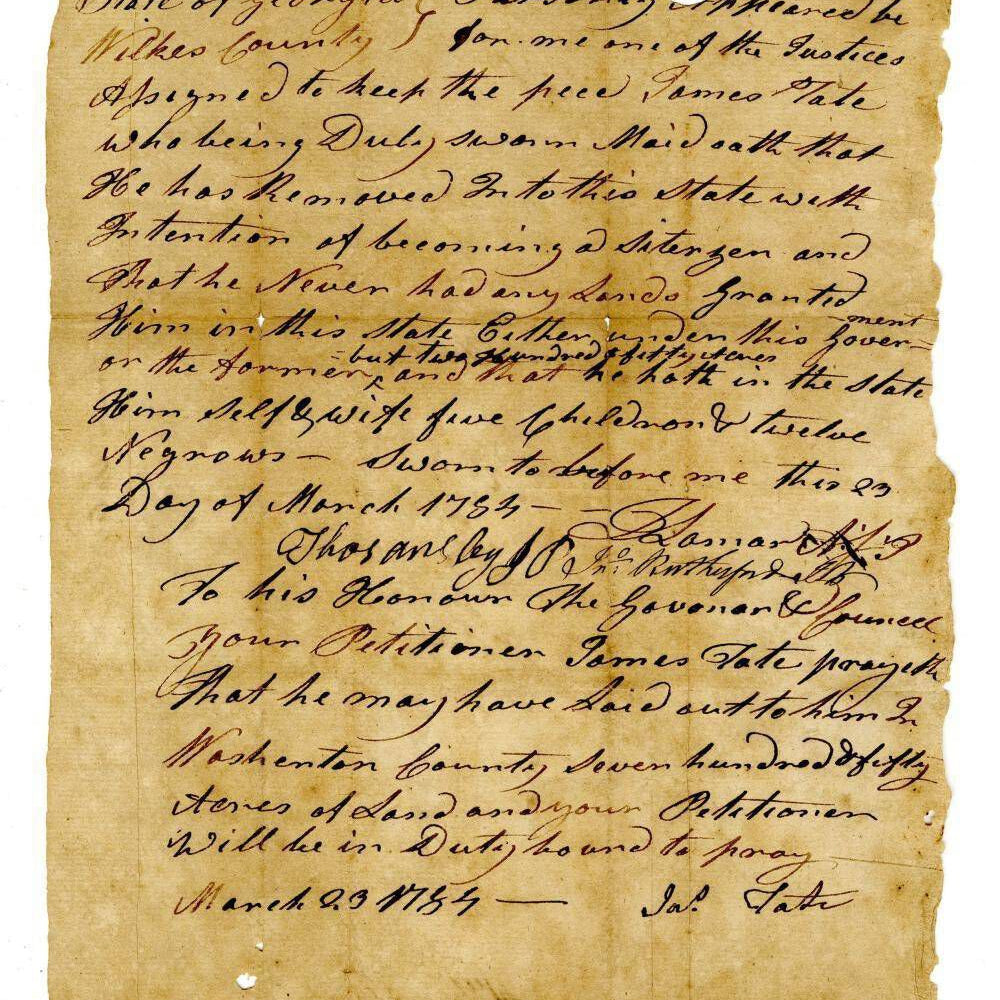 State of Georgia } Personaly Appeared be
Wilkes County } for me one of the Justices
Assigned to keep the pece James Tate
who being Duly sworn Maid oath that
He has Removed Into this State with
Intention of becoming a sitezen and
That he Never had any Lands Granted
Him in this State Either under this Gover=
=ment
or the former ^ and that he hath in the State
but two Hundred & fifty Acres
Him self & wife five Children & twelve
Negrows — Sworn to before me this 23
Day of March 1784 —
Z Lamar
Thos Ansley JP Jno. Rutherford
To his Honour The Govonar & Councel
Your Petitioner James Tate prayeth
That he may have Laid out to him In
Washenton County Seven hundred & fifty
Acres of Land and your Petitioner
Will be in Duty bound to pray
March 23 1784 — Jas. Tate